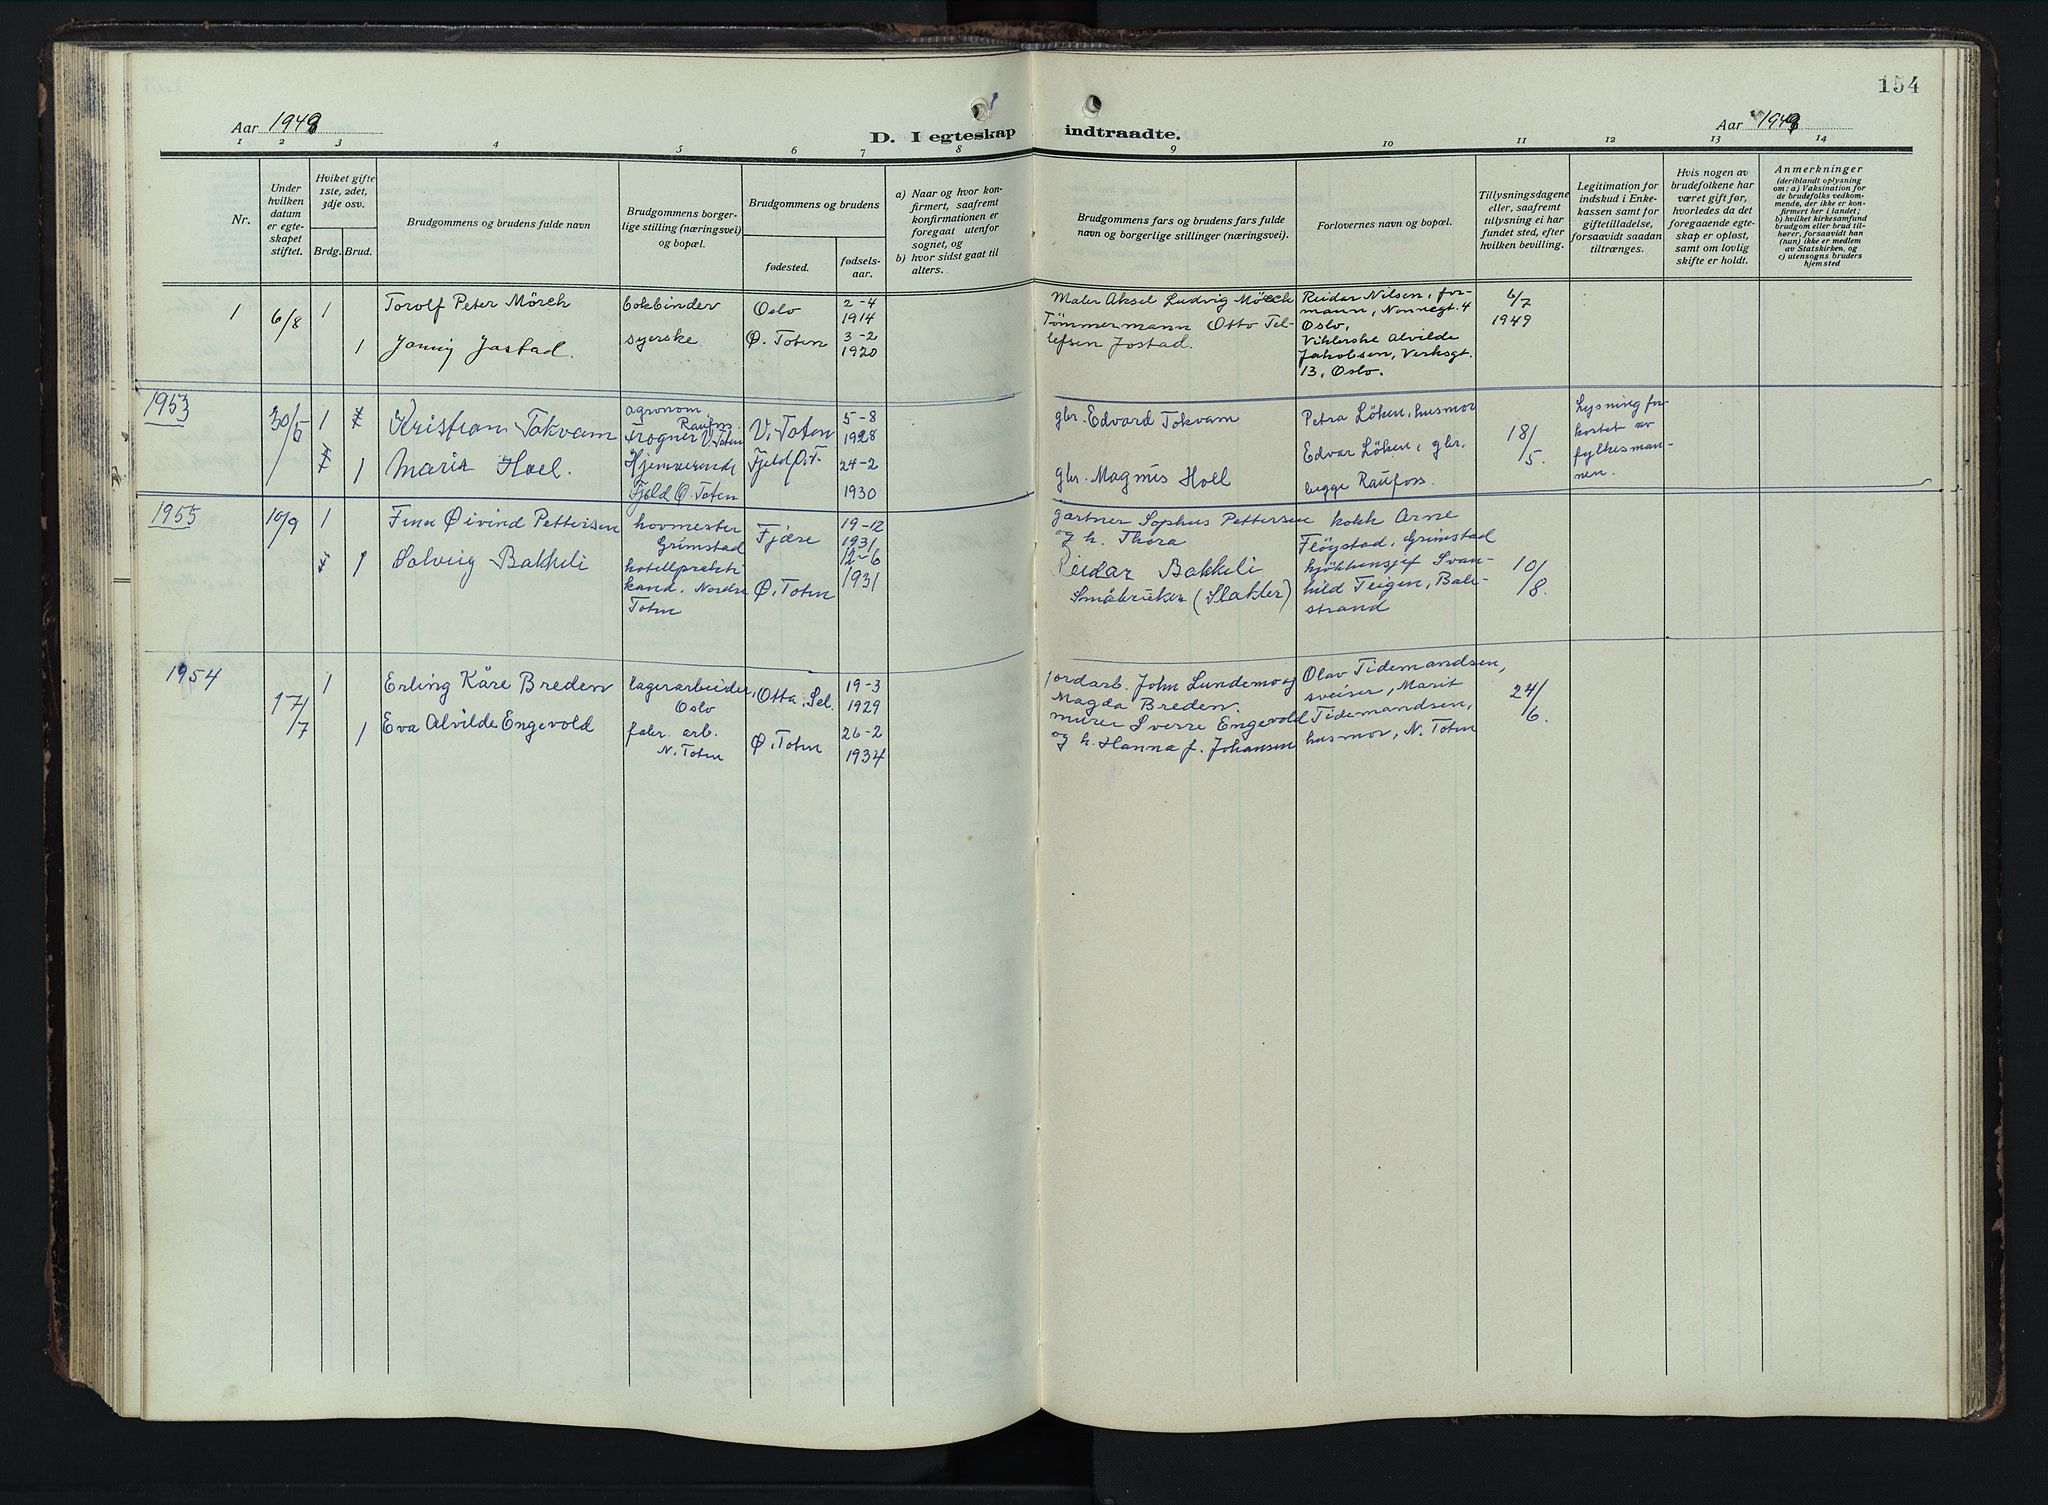 154
Aar 1949
D. I egteskap indtraadte.
Aar 1949
1 2 3 4 5 6 7 8 9 10 11 12 13 14
Nr.
Under
hvilken
datum
er egte-
skapet
stiftet.
Hvilket gifte
1ste, 2det,
3dje osv.
Brdg. Brud.
Brudgommens og brudens fulde navn
Brudgommens borger-
lige stilling (næringsvei)
og bopæl.
Brudgommens og brudens
fødested.
fødsels-
aar.
a) Naar og hvor kon-
firmert, saafremt
konfirmationen er
foregaat utenfor
sognet, og
b) hvor sidst gaat til
alters.
Brudgommens fars og brudens fars fulde
navn og borgerlige stillinger (næringsvei).
Forlovernes navn og bopæl.
Tillysningsdagene
eller, saafremt
tillysning ei har
fundet sted, efter
hvilken bevilling.
Legitimation for
indskud i Enke-
kassen samt for
giftetilladelse,
forsaavidt saadan
tiltrænges.
Hvis nogen av
brudefolkene har
været gift før,
hvorledes da det
foregaaende egte-
skap er opløst,
samt om lovlig
skifte er holdt.
Anmerkninger
(deriblandt oplysning
om: a) Vaksination for
de brudefolks vedkom-
mende, der ikke er kon-
firmert her i landet;
b) hvilket kirkesamfund
brudgom eller brud til-
hører, forsaavidt han
(hun) ikke er medlem
av Statskirken, og
c) utensogns bruders
hjemsted
1 6/8 1
Torolf Peter Mörch
bokbinder
Oslo
2-4
1914
Maler Aksel Ludvig Mörch
Reidar Nilsen, for-
mann, Nonnegt. 4
Oslo,
6/7
1949
1 Jonny Jostad.
syerske
Ø. Toten
3-2
1920
Tömmermann Otto Tel-
lefsen Jostad.
Viklerske Alvilde
Jakobsen, Verksgt.
13, Oslo.
1953
30/5 1
Kristian Tokvam
agronom,
Raufoss
Frogner V. Toten
V. Toten
5-8
1928
gbr. Edvard Tokvam
Petra Löken, husmor
18/5.
Lysning for-
kortet av
fylkesman-
nen.
1 Maria Hoel.
Hjemværende
Fjeld Ø. Toten
Fjeld Ø. T.
24-2
1930
gbr. Magnus Hoel
Edvar Löken, gbr.
begge Raufoss.
1955
10/9 1
Finn Øivind Pettersen
hovmester
Grimstad
Fjære
19-12
1931
gartner Sophus Pettersen
og h. Thora
kokk Arne
Flöystad, Grimstad
1 Solveig Bakkeli
hotellprakti-
kand. Nordre
Toten
Ø. Toten
12-6
1931
Reidar Bakkeli
Småbruker (Slakter)
kjökkensjef Svan-
hild Teigen, Bale-
strand
10/8.
1954
17/7 1
Erling Kåre Breden
lagerarbeider,
Oslo
Otta, Sel.
19-3
1929
jordarb. John Lundemo og
Magda Breden.
Olav Tidemandsen,
sveiser, Marit
Tidemandsen,
husmor, N. Toten
24/6.
1 Eva Alvilde Engevold
fabr. arb.
N. Toten
Ø. Toten
26-2
1934
murer Sverre Engevold
og h. Hanna f. Johansen